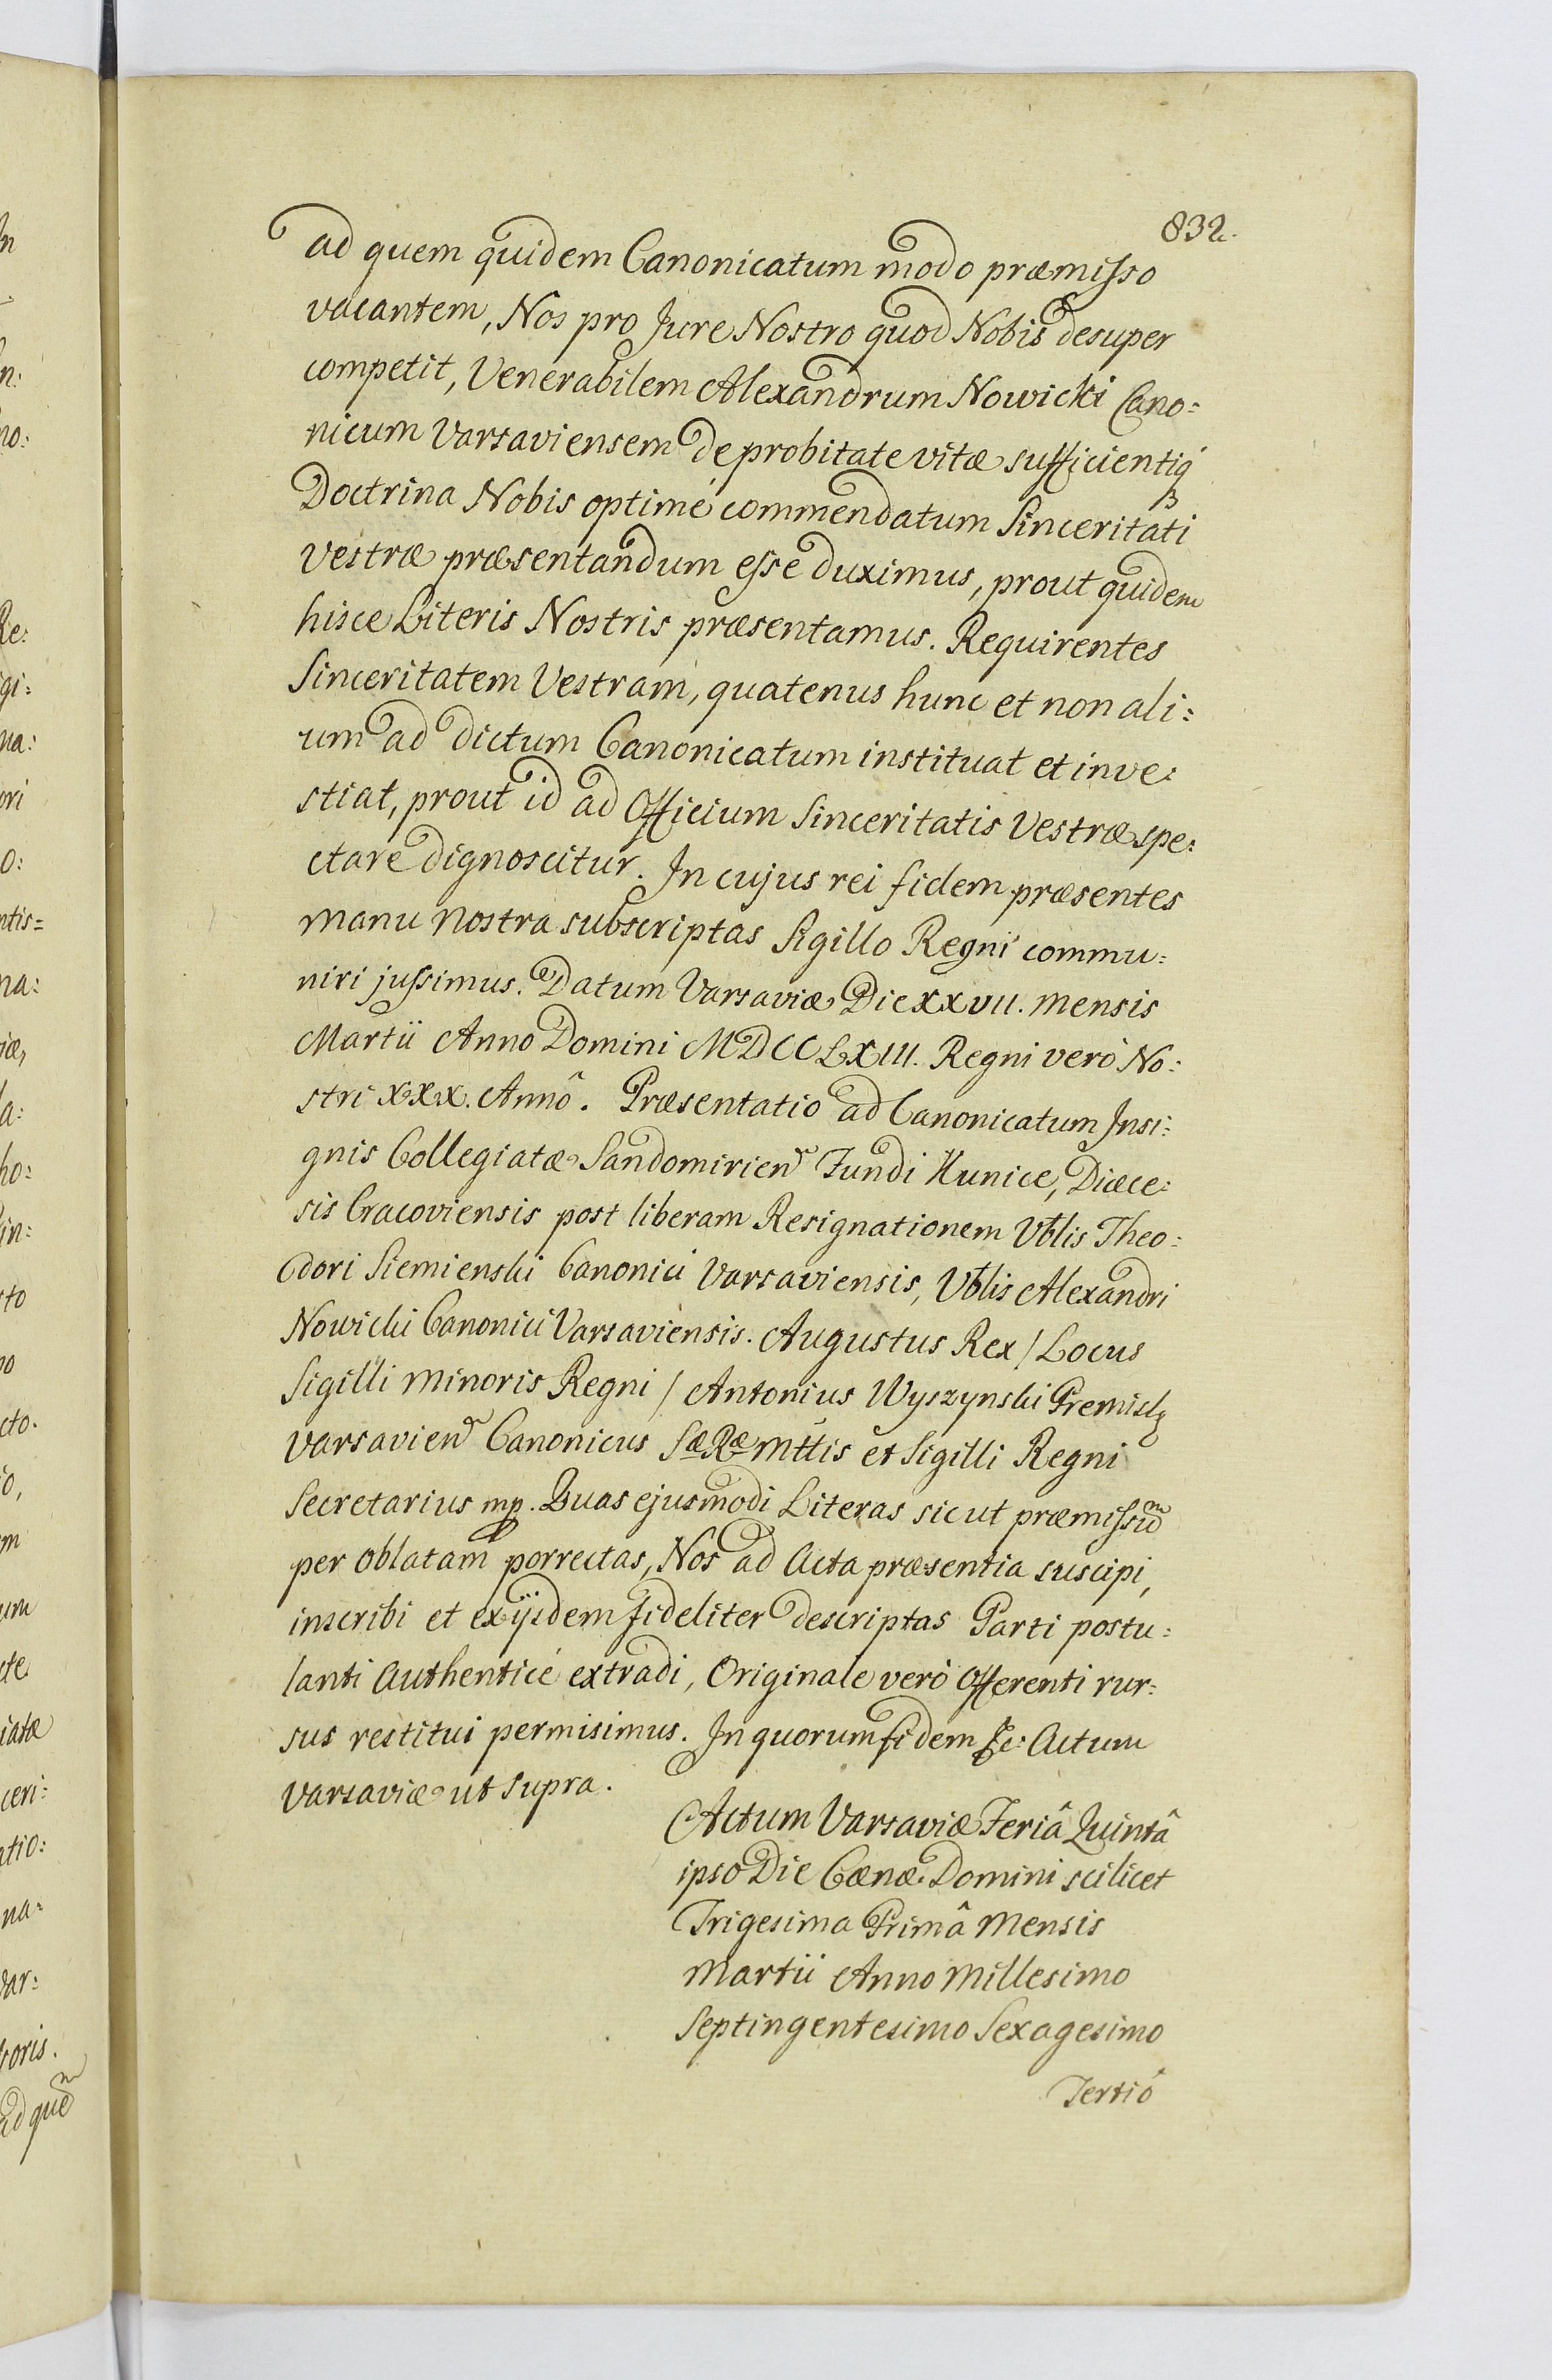 832.
ad quem quidem Canonicatum modo præmisso
vacantem, Nos pro Jure Nostro quod Nobis desuper
competit, Venerabilem Alexandrum Nowicki Cano:
nicum Varsaviensem de probitate vitæ sufficientiq́
Doctrina Nobis optimè commendatum Sinceritati
Vestræ præsentandum esse duximus, prout quidem
hisce Literis Nostris præsentamus. Requirentes
Sinceritatem Vestram, quatenus hunc et non ali:
um ad dictum Canonicatum instituat et inve:
stiat, prout id ad Officium Sinceritatis Vestræ spe:
ctare dignoscitur. In cujus rei fidem præsentes
manu nostra subscriptas Sigillo Regni commu:
niri jussimus. Datum Varsaviæ Die XXVII. mensis
Martii Anno Domini MDCCLXIII. Regni verò No:
stri XXX. Annô. Præsentatio ad Canonicatum Insi:
gnis Collegiatæ Sandomirien̄ Fundi Kunice, Diæce:
sis Cracoviensis post liberam Resignationem Vblis Theo:
dori Siemienski Canonici Varsaviensis, Vblis Alexandri
Nowicki Canonici Varsaviensis. Augustus Rex / Locus
Sigilli minoris Regni / Antonius Wyszynski Premislȩ
Varsavien̄ Canonicus Sæ Ræ Mttis et Sigilli Regni
Secretarius mp. Quas ejusmodi Literas sicut præmissũ
per oblatam porrectas, Nos ad Acta præsentia suscipi,
inscribi et ex ijsdem fideliter descriptas Parti postu:
lanti Authenticè extradi, Originale verò Offerenti rur:
sus restitui permisimus. In quorum fidem &c: Actum
Varsaviæ ut supra.
Actum Varsaviæ Feriâ Quintâ
ipso Die Cænæ Domini scilicet
Trigesima Primâ Mensis
Martii Anno Millesimo
Septingentesimo Sexagesimo
Tertiô